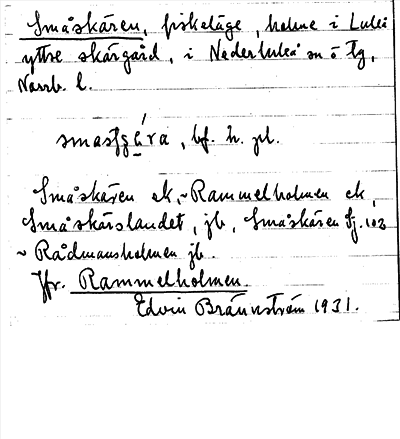 Småskären, fiskeläge, holme i Luleå
yttre skärgård, i Nederluleå sn o. tg,
Norrb. l.
bf. n. pl.
Småskären ek, ~ Rammelholmen ek,
Småskärslandet, jb, Småskären fj. 102
~ Rådmansholmen jb.
Jfr. Rammelholmen.
Edvin Brännström 1931.